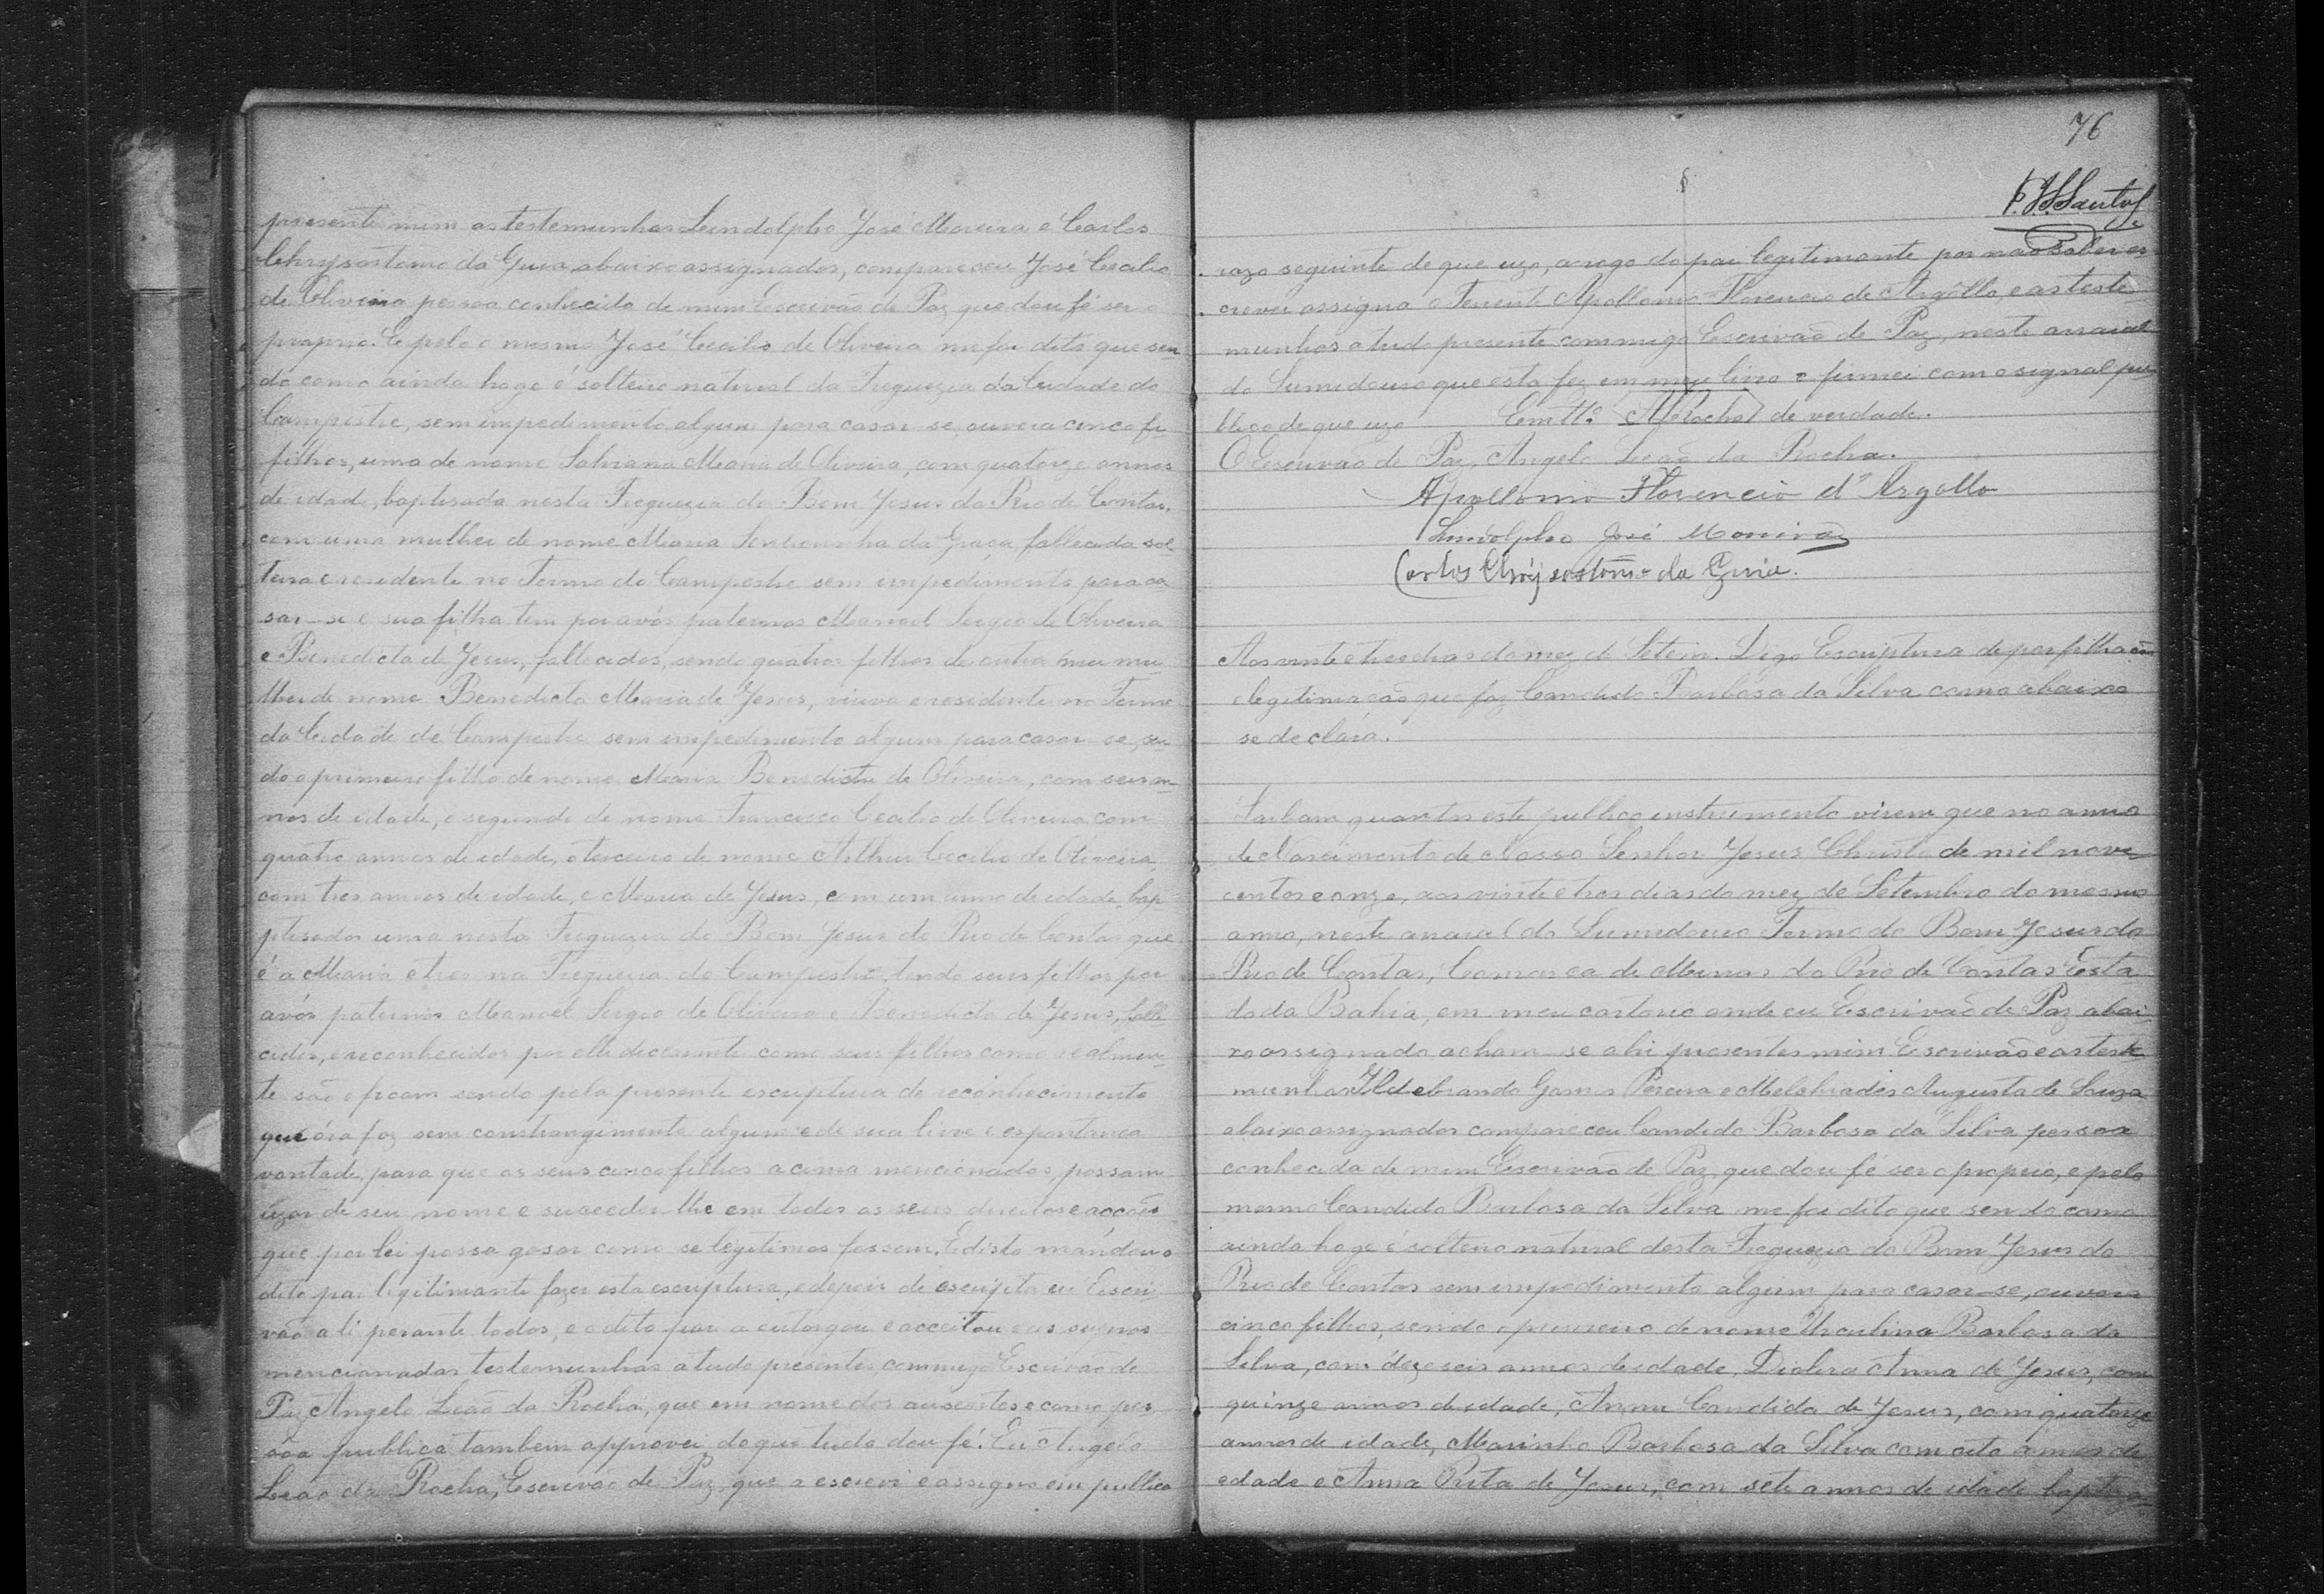 presente mim as testemunhas Lindolpho José Moreira e Carlos
Chrysostomo da Guia, abaixo assignados, compareceu José Cecilio
de Oliveira pessoa conhecida de mim Escrivão de Paz que dou fé ser o
proprio. E pelo o mesmo José Cecilio de Oliveira me foi dito que sen
do como ainda hoge é solteiro natural da Freguezia da Cidade do
Campestre, sem impedimento algum para casar se, ouvera cinco fi
filhos, uma de nome Maria de Oliveira, com quatorze annos
de idade, baptisada nesta Freguezia do Bom Jesus do Rio de Contas,
com uma mulher de nome Maria da Graça, fallecida sol
teira e residente no Termo do Campestre sem impedimento para ca
sar-se e sua filha tem por avós paternos Manoel Sergio de Oliveira
e Benedicta de Jesus, fallecidos, sendo quatros filhos de outra mu
lher de nome Benedicta Maria de Jesus, viuva e residente no Termo
da Cidade de Campestre sem impedimento algum para casar-se, sen
do o primeiro filho de nome Maria Benedicta de Oliveira, com seis an
nos de idade, o segundo de nome Francisco Cecilio de Oliveira com
quatro annos de idade, o terceiro de nome Arthur Cecilio de Oliveira
com tres annos de idade, e Maria de Jesus, com um anno de idade, bap
ptisados uma nesta Freguezia do Bom Jesus do Rio de Contas que
é a Maria e tres na Freguezia do Campestre, tendo seus filhos por
avós paternos Manoel Sergio de Oliveira e Benedicta de Jesus, falle
cidos, e reconhecidos por elle declarante como seus filhos como realmen
te são e ficam sendo pela presente escriptura de reconhecimento
que óra faz sem constrangimento algum e de sua livre e espontanea
vontade, para que os seus cinco filhos acima mencionados, possam
uzar de seu nome e succeder-lhe em todos os seus direitos e accoēs
que por lei possa gosar como se legitimos fossem. E disto mandou o
dito pai legitimante fazer esta escriptura, e depois de escripta eu Escri
vão a li perante todos, e o dito pai a outorgou e acceitou
mencionadas testemunhas a tudo presentes, commigo Escrivão de
Paz Angelo Leão da Rocha, que em nome dos ausentes e como pes
sôa publica tambem approvei do que tudo dou fé. Eu Angelo
Leão da Rocha, Escrivão de Paz, que a escrevi e assigno em publico
76
Santos
razo seguinte de que uzo, a rogo do pai legitimante por não saber es
crever assigna o Tenente Apollonio Florencio de Argôllo, e as teste
munhas a tudo presente commigo Escrivão de Paz, neste arraial
do Sumidouro que esta fez em meu livro e firmei com o signal pu
blico de que uzo Em tt.º ARocha de verdade.
O Escrivão de Paz, Angelo Leão da Rocha.
Apollonio Florencio d'Argollo
Lindolpho José Moreira
Carlos Chrysostomo da Guia.
Aos vinte e tres dias do mez de Setem. Digo Escriptura de perfilhação
e legitimação que faz Candido Barbosa da Silva como abaixo
se declára.
Saibam quantos este publico instrumento virem que no anno
de Nascimento de Nosso Senhor Jesus Christo de mil nove
centos e onze, aos vinte e tres dias do mez de Setembro do mesmo
anno, neste arraial do Sumidouro Termo do Bom Jesus do
Rio de Contas, Comarca de Minas do Rio de Contas Esta
do da Bahia, em meu cartorio onde eu Escrivão de Paz abai
xo assignado acham-se ahi presentes mim Escrivão e as teste
munhas Hildebrando Gomes Pereira e Melchiades Augusto de Souza
abaixo assignados compareceu Candido Barbosa da Silva pessoa
conhecida de mim Escrivão de Paz, que dou fé ser o proprio, e pelo
mesmo Candido Barbosa da Silva me foi dito que sendo como
ainda hoge é solteiro natural desta Freguezia do Bom Jesus do
Rio de Contas sem impedimento algum para casar-se, ouvera
cinco filhos, sendo o primeiro de nome Barbosa da
Silva, com dezeseis annos de idade, Anna de Jesus, com
quinze annos de idade, Anna Candida de Jesus, com quatorze
annos de idade, Marinho Barbosa da Silva com oito annos de
edade e Anna Rita de Jesus, com sete annos de idade baptiza